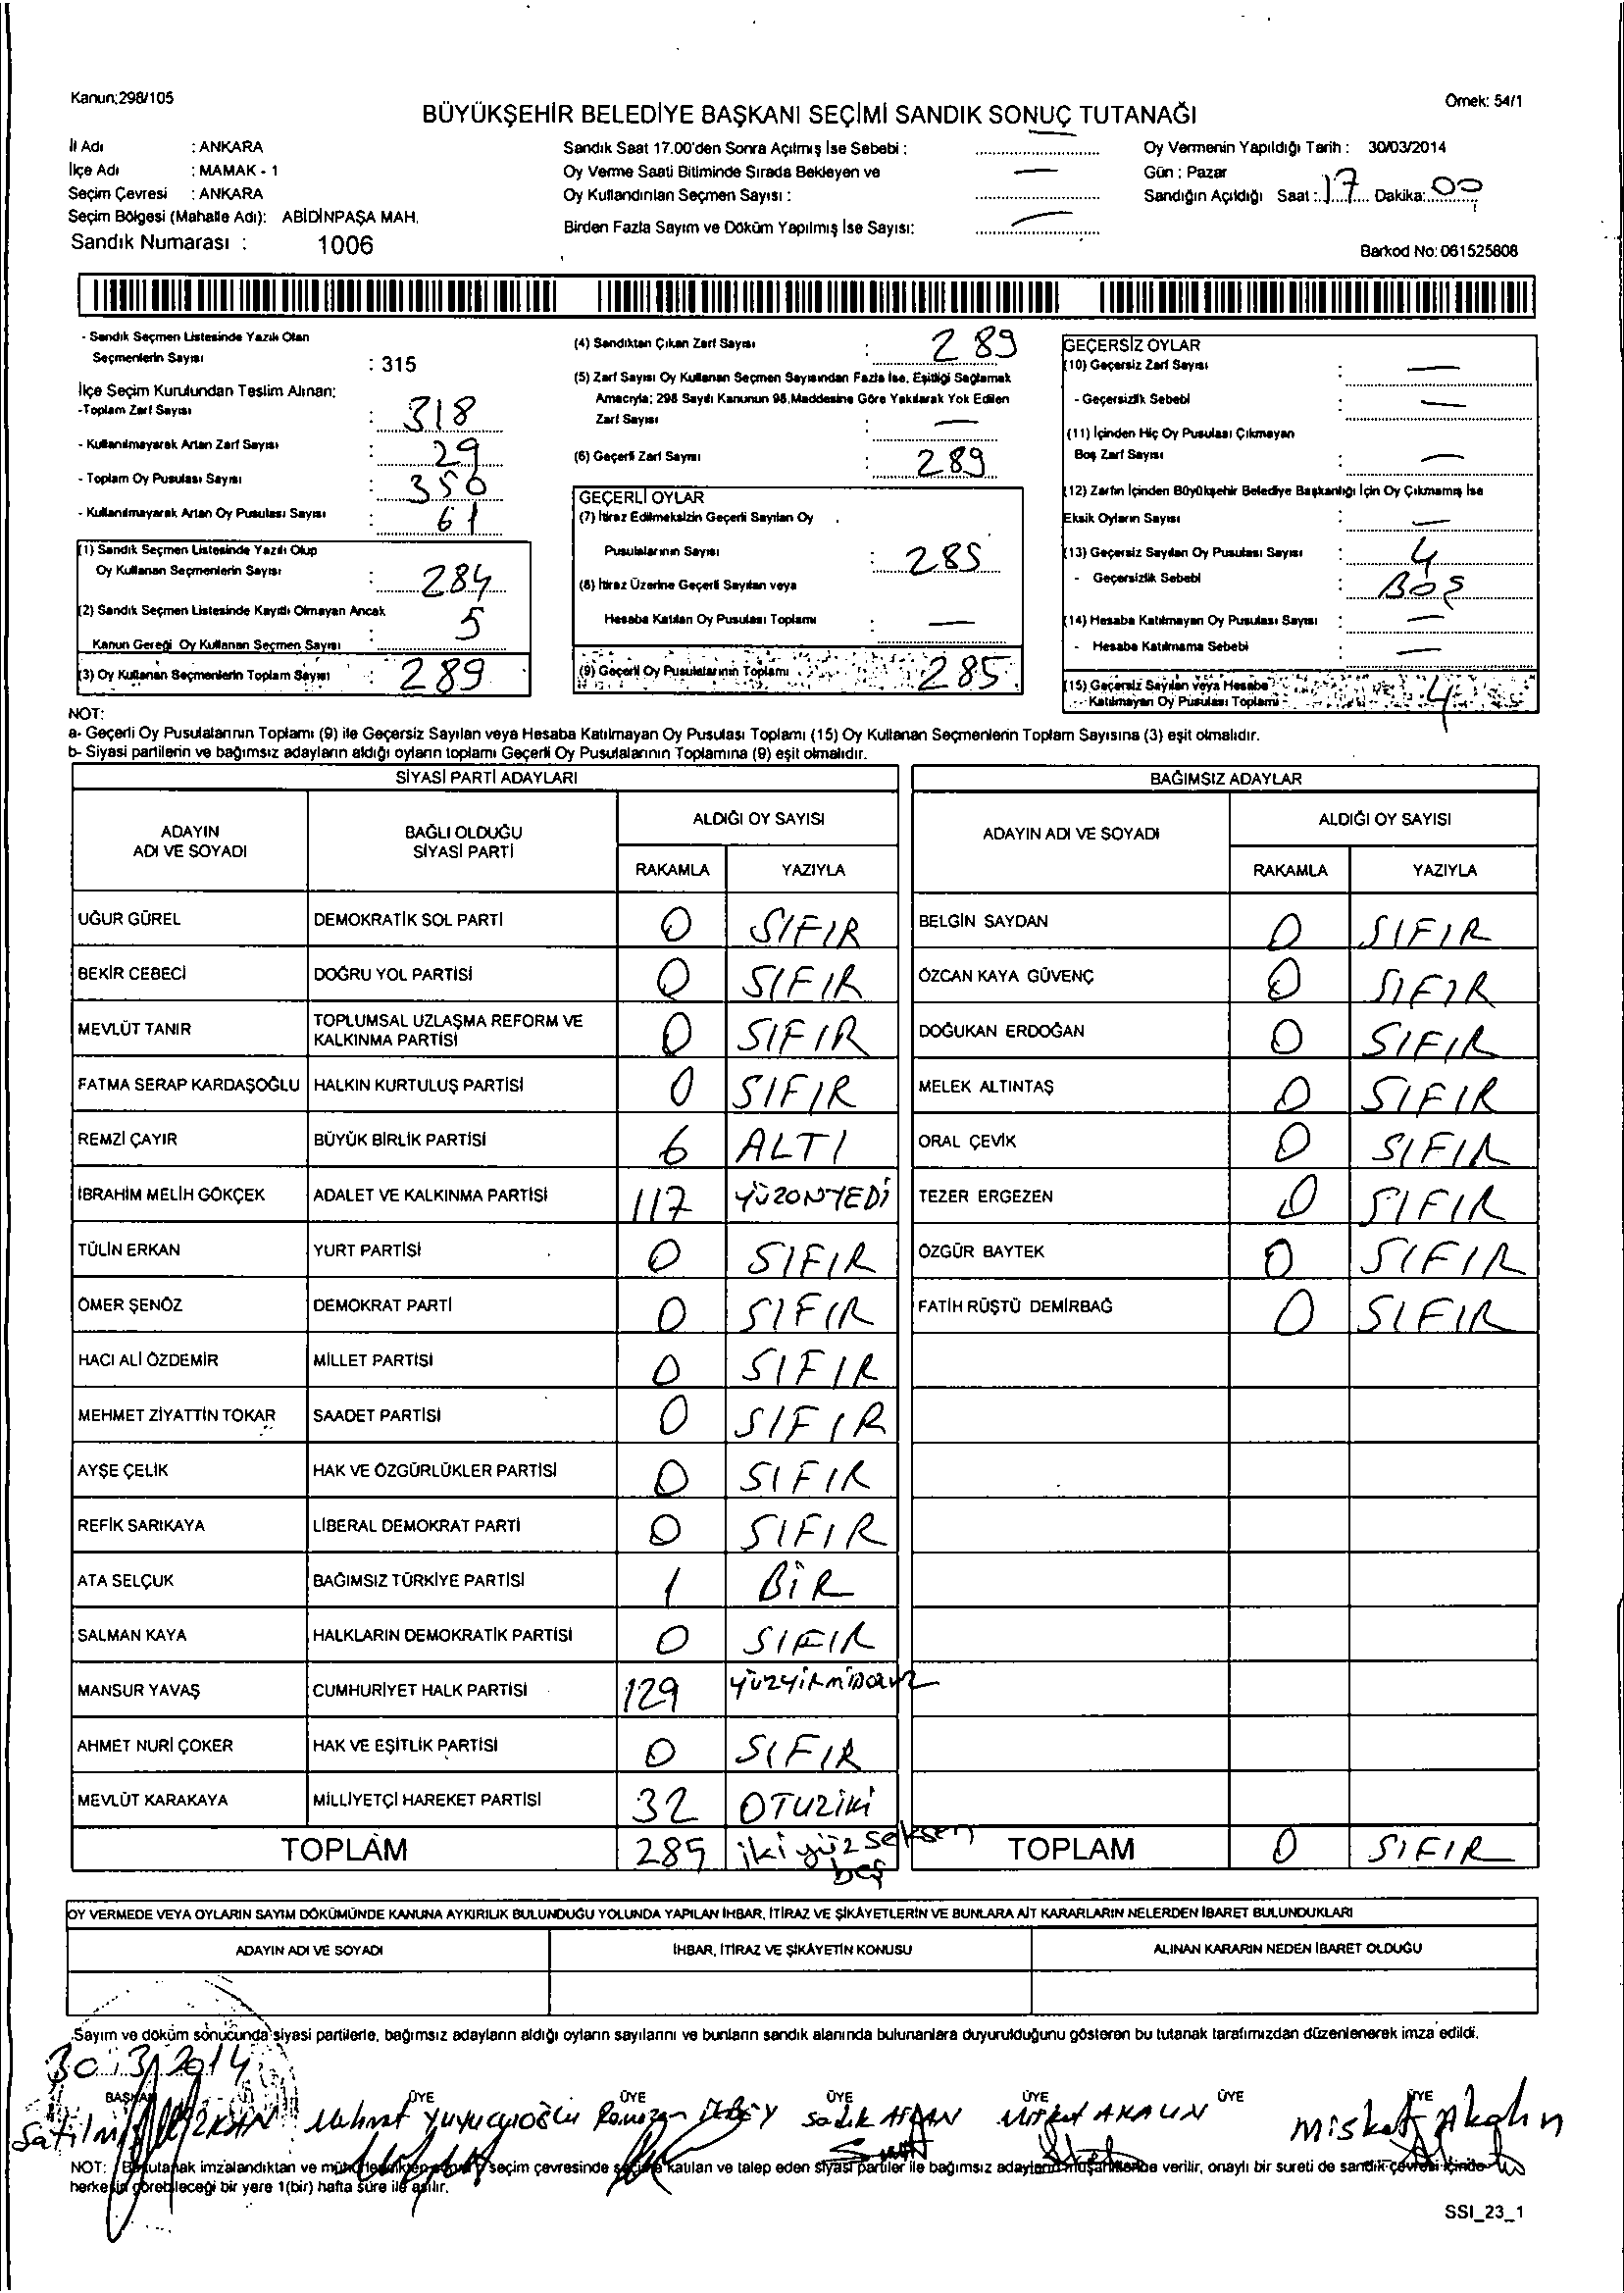 Kanun;298/105
Örnek: 54/1
BÜYÜKŞEHİR BELEDİYE BAŞKANI SEÇİMİ SANDIK SONUÇ TUTANAĞI
İl Adı : ANKARA
İlçe Adı : MAMAK - 1
Seçim Çevresi : ANKARA
Seçim Bölgesi (Mahalle Adı): ABİDİNPAŞA MAH.
Sandık Numarası : 1006
Sandık Saat 17.00'den Sonra Açılmış İse Sebebi : —
Oy Verme Saati Bitiminde Sırada Bekleyen ve
Oy Kullandırılan Seçmen Sayısı : —
Birden Fazla Sayım ve Döküm Yapılmış İse Sayısı: —
Oy Vermenin Yapıldığı Tarih : 30/03/2014
Gün : Pazar
Sandığın Açıldığı Saat : 17 Dakika: 00
Barkod No: 061525808
- Sandık Seçmen Listesinde Yazılı Olan
Seçmenlerin Sayısı : 315
İlçe Seçim Kurulundan Teslim Alınan:
-Toplam Zarf Sayısı : 318
- Kullanılmayarak Artan Zarf Sayısı : 29
- Toplam Oy Pusulası Sayısı : 350
- Kullanılmayarak Artan Oy Pusulası Sayısı : 61
(1) Sandık Seçmen Listesinde Yazılı Olup
Oy Kullanan Seçmenlerin Sayısı : 284
(2) Sandık Seçmen Listesinde Kayıtlı Olmayan Ancak
Kanun Gereği Oy Kullanan Seçmen Sayısı : 5
(3) Oy Kullanan Seçmenlerin Toplam Sayısı : 289
(4) Sandıktan Çıkan Zarf Sayısı : 289
(5) Zarf Sayısı Oy Kullanan Seçmen Sayısından Fazla İse, Eşitliği Sağlamak
Amacıyla; 298 Sayılı Kanunun 98.Maddesine Göre Yakılarak Yok Edilen
Zarf Sayısı : —
(6) Geçerli Zarf Sayısı : 289
GEÇERLİ OYLAR
(7) İtiraz Edilmeksizin Geçerli Sayılan Oy
Pusulalarının Sayısı : 285
(8) İtiraz Üzerine Geçerli Sayılan veya
Hesaba Katılan Oy Pusulası Toplamı : —
(9) Geçerli Oy Pusulalarının Toplamı : 285
GEÇERSİZ OYLAR
(10) Geçersiz Zarf Sayısı : —
- Geçersizlik Sebebi : —
(11) İçinden Hiç Oy Pusulası Çıkmayan
Boş Zarf Sayısı : —
(12) Zarfın İçinden Büyükşehir Belediye Başkanlığı İçin Oy Çıkmamış İse
Eksik Oyların Sayısı : —
(13) Geçersiz Sayılan Oy Pusulası Sayısı : 4
- Geçersizlik Sebebi : BOŞ
(14) Hesaba Katılmayan Oy Pusulası Sayısı : —
- Hesaba Katılmama Sebebi : —
(15) Geçersiz Sayılan veya Hesaba
Katılmayan Oy Pusulası Toplamı : 4
NOT:
a- Geçerli Oy Pusulalarının Toplamı (9) ile Geçersiz Sayılan veya Hesaba Katılmayan Oy Pusulası Toplamı (15) Oy Kullanan Seçmenlerin Toplam Sayısına (3) eşit olmalıdır.
b- Siyasi partilerin ve bağımsız adayların aldığı oyların toplamı Geçerli Oy Pusulalarının Toplamına (9) eşit olmalıdır.
SİYASİ PARTİ ADAYLARI
ADAYIN ADI VE SOYADI BAĞLI OLDUĞU SİYASİ PARTİ ALDIĞI OY SAYISI
RAKAMLA YAZIYLA
UĞUR GÜREL DEMOKRATİK SOL PARTİ 0 SIFIR
BEKİR CEBECİ DOĞRU YOL PARTİSİ 0 SIFIR
MEVLÜT TANIR TOPLUMSAL UZLAŞMA REFORM VE KALKINMA PARTİSİ 0 SIFIR
FATMA SERAP KARDAŞOĞLU HALKIN KURTULUŞ PARTİSİ 0 SIFIR
REMZİ ÇAYIR BÜYÜK BİRLİK PARTİSİ 6 ALTI
İBRAHİM MELİH GÖKÇEK ADALET VE KALKINMA PARTİSİ 117 YÜZONYEDİ
TÜLİN ERKAN YURT PARTİSİ 0 SIFIR
ÖMER ŞENÖZ DEMOKRAT PARTİ 0 SIFIR
HACI ALİ ÖZDEMİR MİLLET PARTİSİ 0 SIFIR
MEHMET ZİYATTİN TOKAR SAADET PARTİSİ 0 SIFIR
AYŞE ÇELİK HAK VE ÖZGÜRLÜKLER PARTİSİ 0 SIFIR
REFİK SARIKAYA LİBERAL DEMOKRAT PARTİ 0 SIFIR
ATA SELÇUK BAĞIMSIZ TÜRKİYE PARTİSİ 1 BİR
SALMAN KAYA HALKLARIN DEMOKRATİK PARTİSİ 0 SIFIR
MANSUR YAVAŞ CUMHURİYET HALK PARTİSİ 129 YÜZYİRMİDOKUZ
AHMET NURİ ÇOKER HAK VE EŞİTLİK PARTİSİ 0 SIFIR
MEVLÜT KARAKAYA MİLLİYETÇİ HAREKET PARTİSİ 32 OTUZİKİ
TOPLAM 285 iki yüz seksen beş
BAĞIMSIZ ADAYLAR
ADAYIN ADI VE SOYADI ALDIĞI OY SAYISI
RAKAMLA YAZIYLA
BELGİN SAYDAN 0 SIFIR
ÖZCAN KAYA GÜVENÇ 0 SIFIR
DOĞUKAN ERDOĞAN 0 SIFIR
MELEK ALTINTAŞ 0 SIFIR
ORAL ÇEVİK 0 SIFIR
TEZER ERGEZEN 0 SIFIR
ÖZGÜR BAYTEK 0 SIFIR
FATİH RÜŞTÜ DEMİRBAĞ 0 SIFIR
TOPLAM 0 SIFIR
OY VERMEDE VEYA OYLARIN SAYIM DÖKÜMÜNDE KANUNA AYKIRILIK BULUNDUĞU YOLUNDA YAPILAN İHBAR, İTİRAZ VE ŞİKÂYETLERİN VE BUNLARA AİT KARARLARIN NELERDEN İBARET BULUNDUKLARI
ADAYIN ADI VE SOYADI İHBAR, İTİRAZ VE ŞİKÂYETİN KONUSU ALINAN KARARIN NEDEN İBARET OLDUĞU
Sayım ve döküm sonucunda siyasi partilerle, bağımsız adayların aldığı oyların sayılarını ve bunların sandık alanında bulunanlara duyurulduğunu gösteren bu tutanak tarafımızdan düzenlenerek imza edildi.
30.3.2014
BAŞKAN ÜYE ÜYE ÜYE ÜYE ÜYE ÜYE
Mahmut Ramazan Sadık AKALIN Misket Akalın
NOT: Bu tutanak imzalandıktan ve mühürlendikten sonra seçim çevresinde seçime katılan ve talep eden siyasi partiler ile bağımsız adayların müşahitlerine verilir, onaylı bir sureti de sandık çevresi içinde
herkesin görebileceği bir yere 1(bir) hafta süre ile asılır.
SSI_23_1